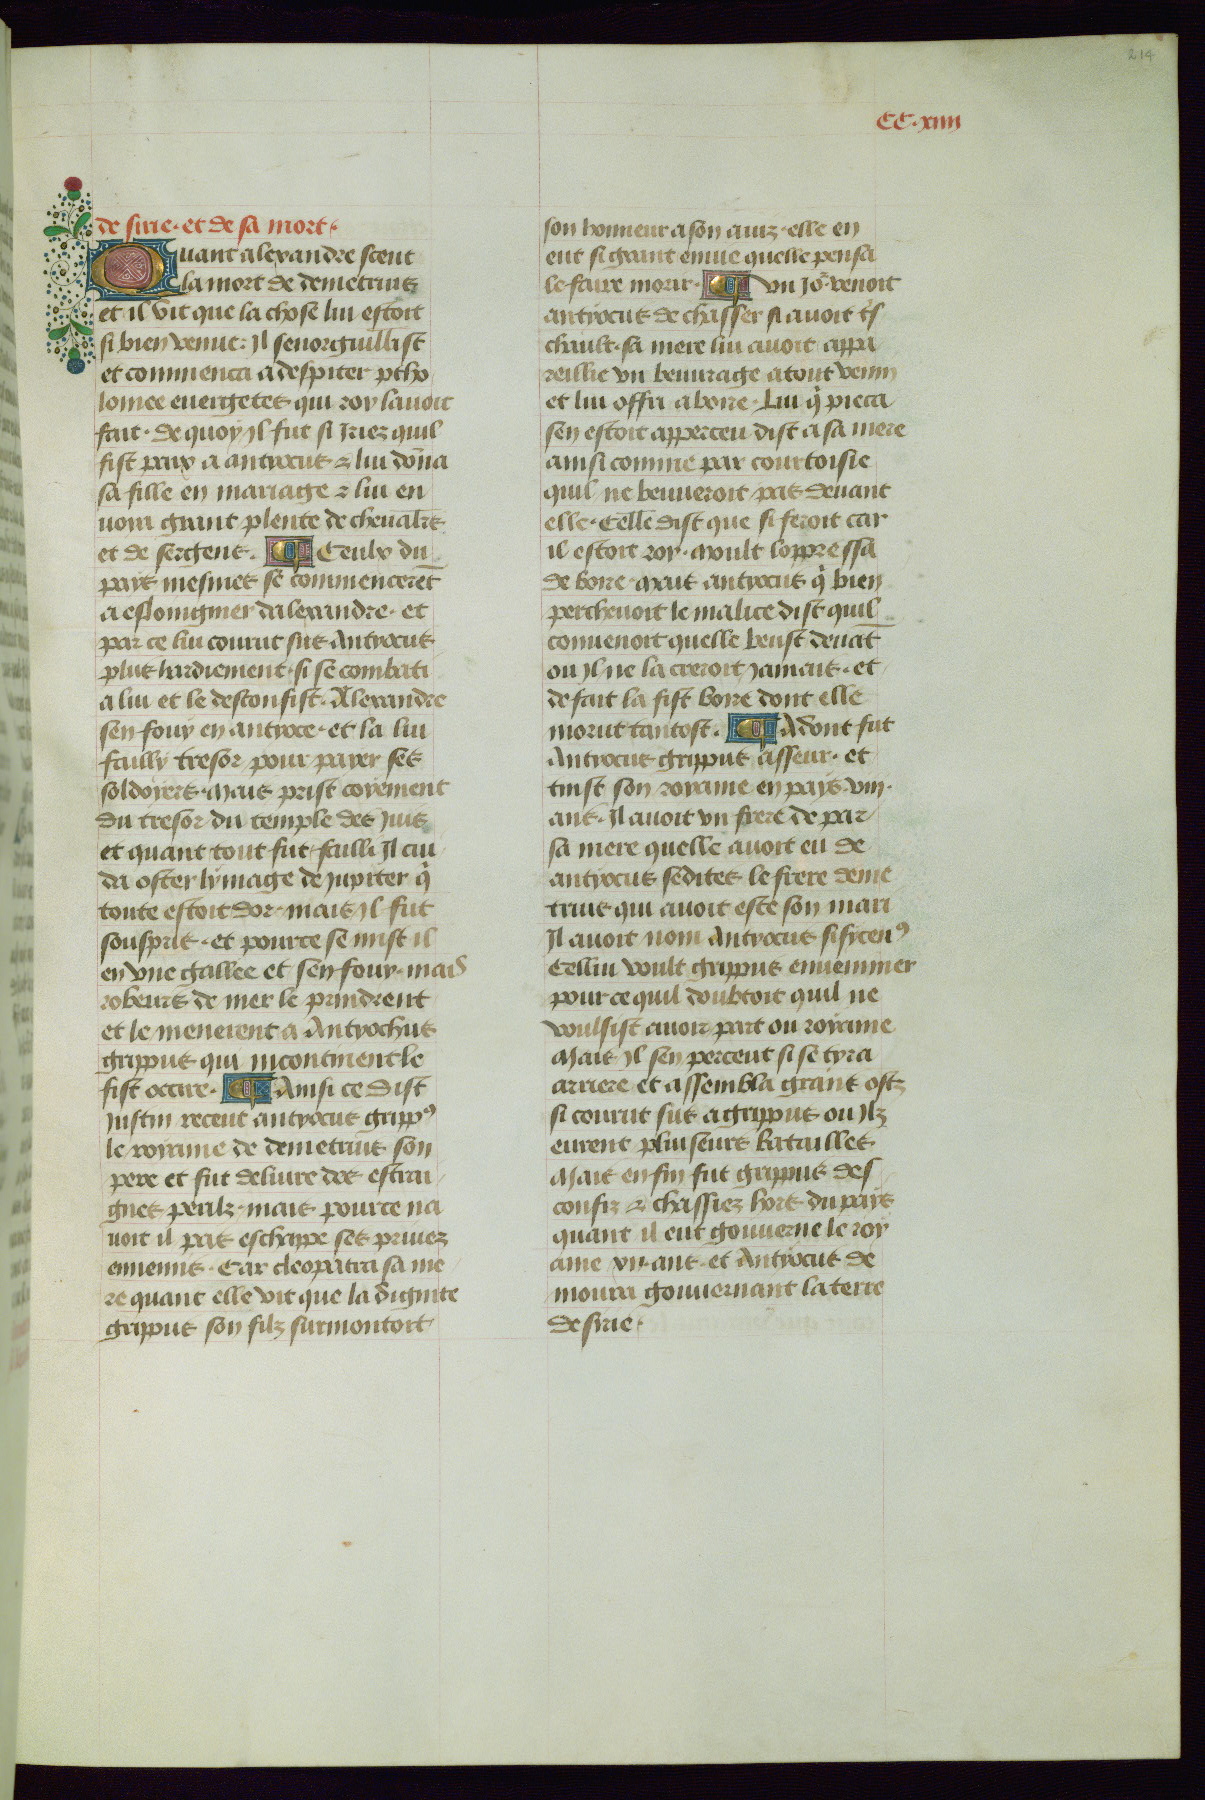 214
CC·xiiii
de sirie· et de sa mort·
Quant alexandre sceut
la mort de demetrius
et il vit que la chose lui estoit
si bien venue: Il senorguillist
et commenca a despiter ptho
lomee euergetes qui roy lauoit
fait· de quoy Il fut si Iriez quil
fist paix a antyocus et lui dōna
sa fille en mariage et lui en
uoia grant plente de cheualrs
et de sergens· Ceulx du
pays mesmes se commencerēt
a eslongnier dalexandre· et
par ce lui courut sus Antyocus
plus hardiement· si se combati
a lui et le desconfist· Alexandre
sen fouy en antyoce· et la lui
failly tresor pour payer ses
soldoyers· Mais prist coyement
du tresor du temple des Iuis
et quant tout fut failli Il cui
da oster lymage de Iupiter q̄
toute estoit dor· mais Il fut
souspris· et pource se mist il
en vne gallee et sen fouy· mais
robeurs de mer le prindrent
et le menerent a Antyochus
grippus qui incontinent le
fist occire· Ainsi ce dist
Iustin receut antyocus gripp9
le royaume de demetrius son
pere et fut deliure des estrai
gnes perilz· mais pource na
uoit il pas eschape ses priuez
ennemis· Car cleopatra sa me
re quant elle vit que la dignite
grippus son filz surmontoit
son honneur a son auiz· elle en
eut si grant enuie quelle pensa
le faire morir· Vn Io͛ venoit
antyocus de chasser si auoit tͬs
chault· sa mere lui auoit appa
reillie vn beuurage a tout venin
et lui offri a boire· Lui q̄ pieca
sen estoit apperceu dist a sa mere
ainsi comme par courtoisie
quil ne beuueroit pas deuant
elle· Celle dist que si feroit car
il estoit roy· Moult loppressa
de boire· Mais antyocus q̄ bien
percheuoit le malice dist quil
conuenoit quelle beust deuāt
ou Il ne la creroit Iamais· et
de fait la fist boire dont elle
morut tantost· Adont fut
Antyocus grippus asseur· et
tinst son royaume en pays· viii·
ans· Il auoit vn frere de par
sa mere quelle auoit eu de
antyocus sedites le frere deme
trius qui auoit este son mari
Il auoit nom Antyocus sisycen9
Cellui voult grippus enuenimer
pour ce quil doubtoit quil ne
voulsist auoir part ou royaume
Mais Il sen perceut si se tyra
arriere et assembla grant ostz
si courut sus a grippus ou Ilz
eurent pluiseurs batailles
Mais en fin fut grippus des
confiz et chassiez hors du pays
quant il eut gouuerne le roy
ame xii· ans· et Antyocus de
moura gouuernant la terre
de sirie·